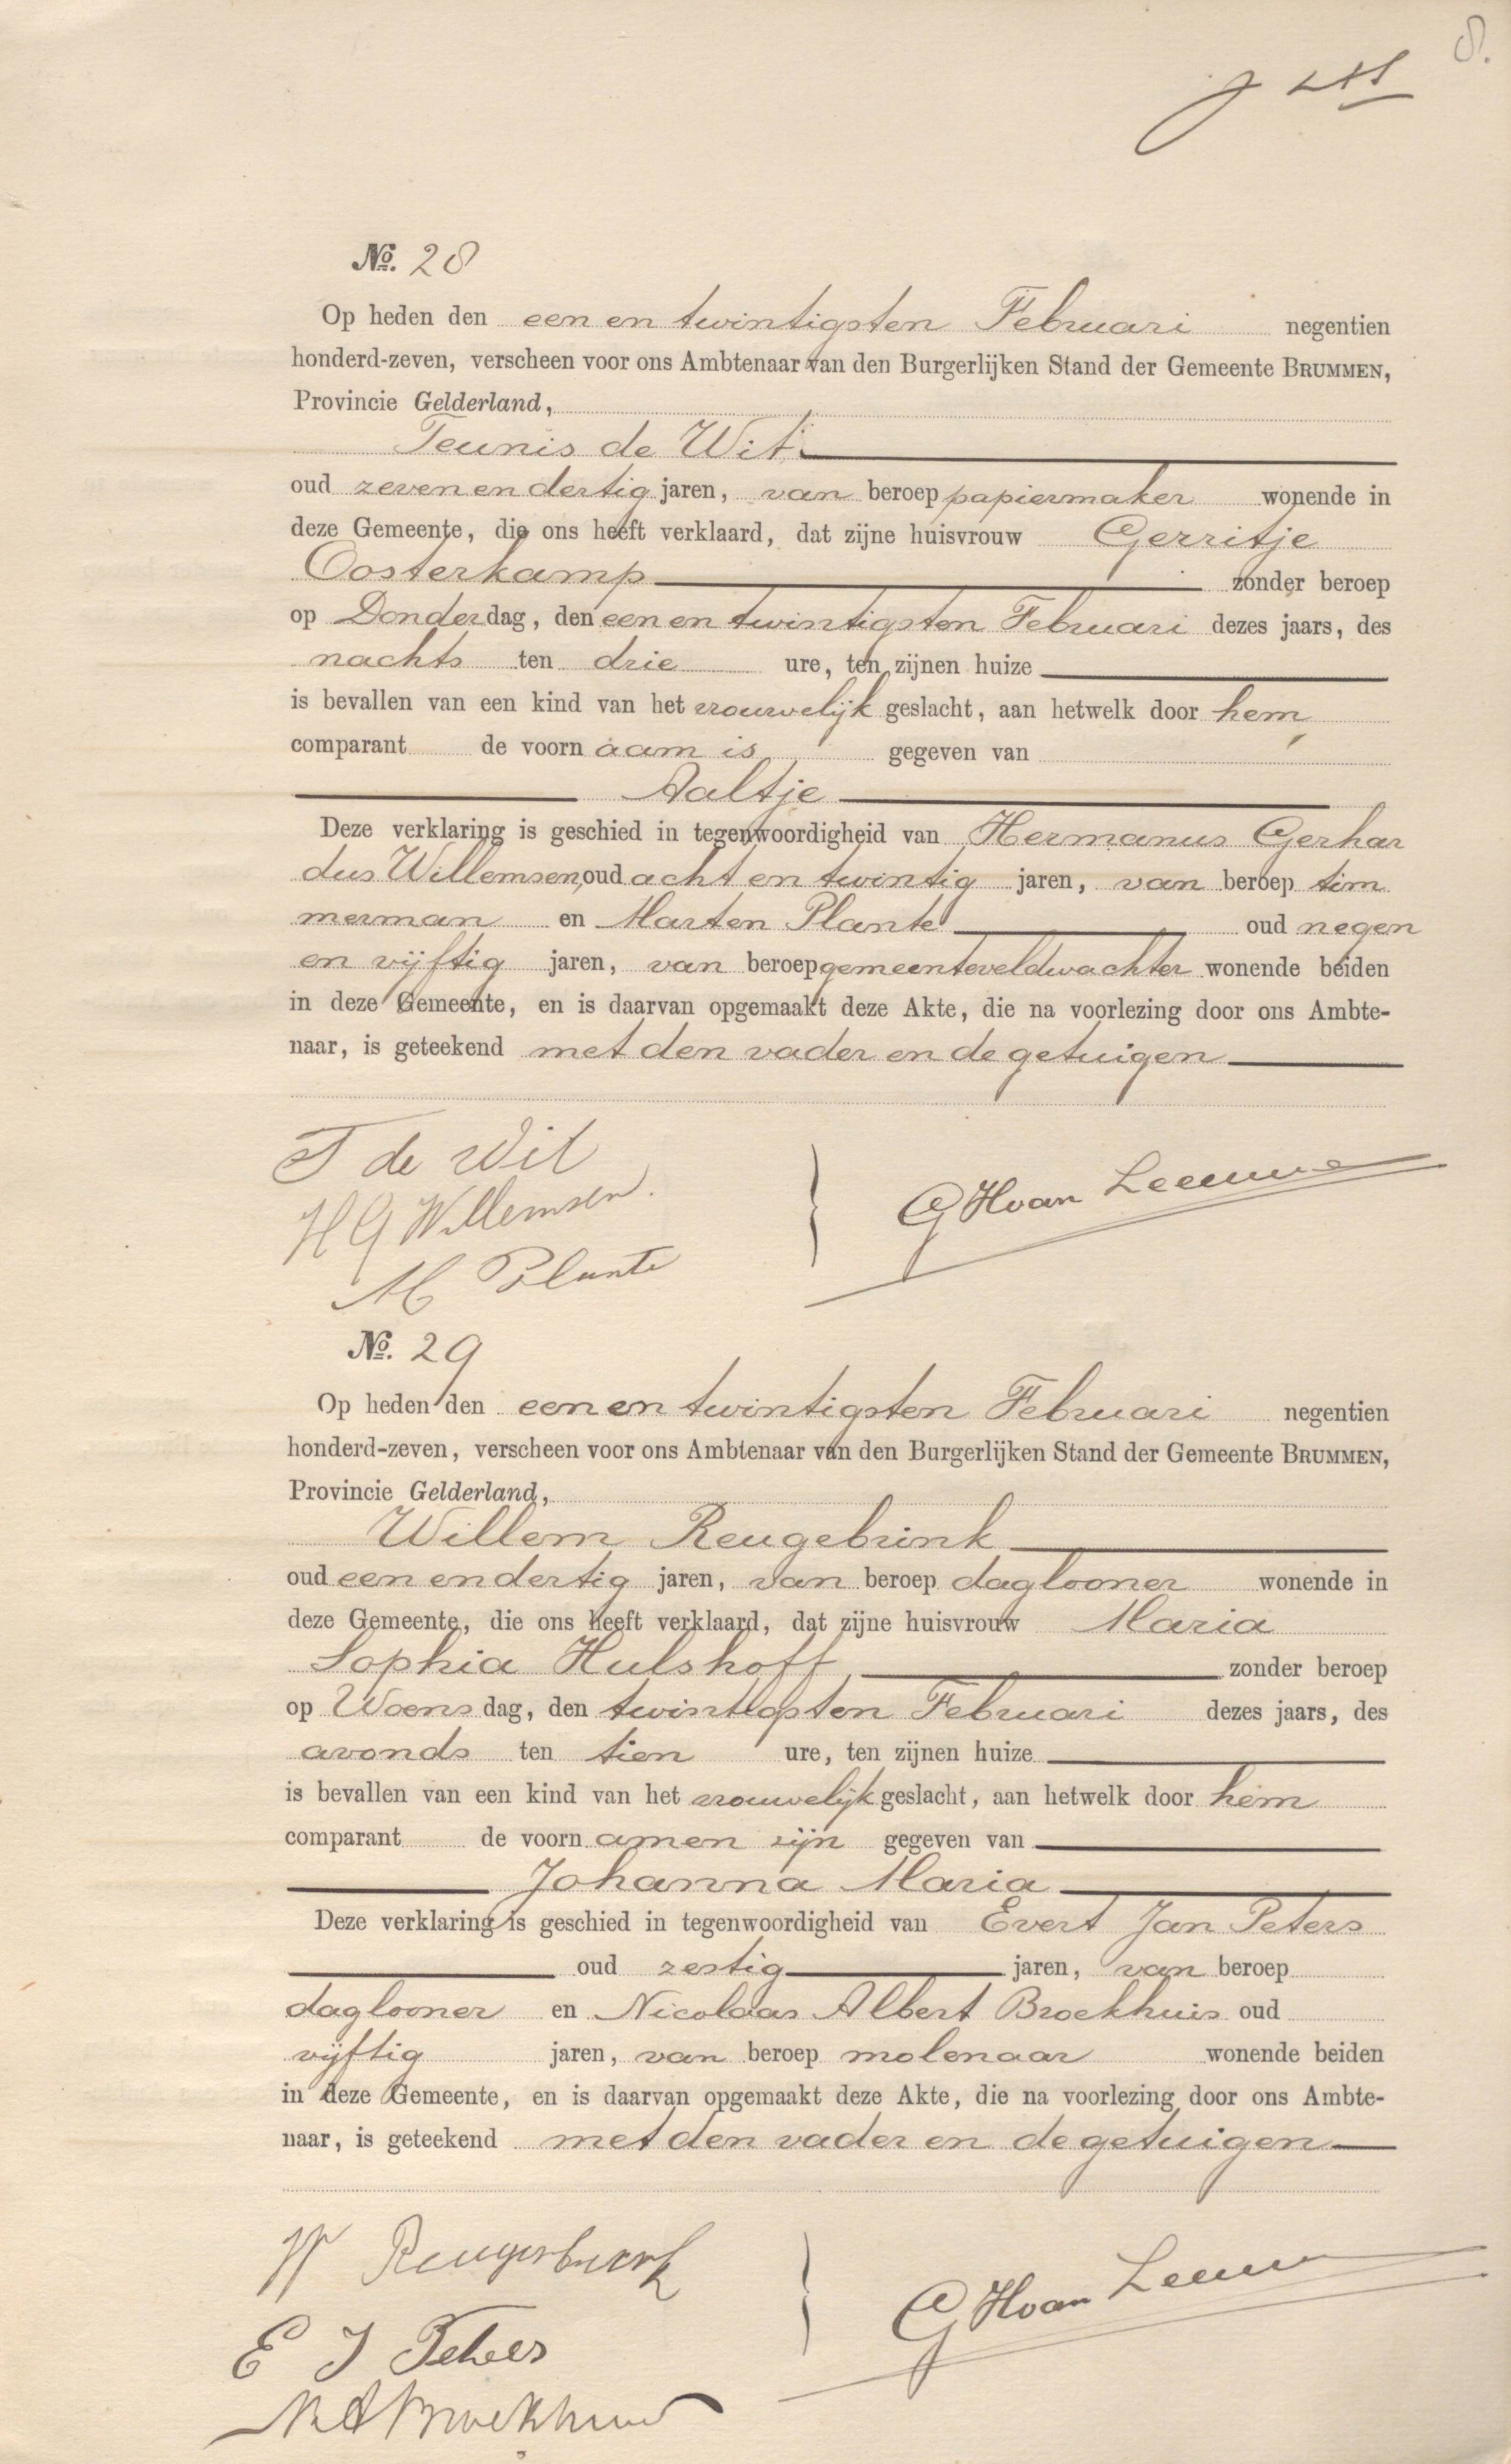 8.
No. 28
Op heden den een en twintigsten Februari negentien
honderd-zeven, verscheen voor ons Ambtenaar van den Burgerlijken Stand der Gemeente BRUMMEN,
Provincie Gelderland,
Teunis de Wit
oud zeven en dertig jaren, van beroep papiermaker wonende in
deze Gemeente, die ons heeft verklaard, dat zijne huisvrouw Gerritje
Oosterkamp zonder beroep
op Donderdag, den een en twintigsten Februari dezes jaars, des
nachts ten drie ure, ten zijnen huize
is bevallen van een kind van het vrouwelijk geslacht, aan hetwelk door hem,
comparant de voornaam is gegeven van
Aaltje
Deze verklaring is geschied in tegenwoordigheid van Hermanus Gerhar
dus Willemsen, oud acht en twintig jaren, van beroep tim
merman en Marten Plante oud negen
en vijftig jaren, van beroep gemeenteveldwachter wonende beiden
in deze Gemeente, en is daarvan opgemaakt deze Akte, die na voorlezing door ons Ambte-
naar, is geteekend met den vader en de getuigen
T de Wit
H G Willemsen.
M Plante
G H van Leeuwe
No. 29
Op heden den een en twintigsten Februari negentien
honderd-zeven, verscheen voor ons Ambtenaar van den Burgerlijken Stand der Gemeente BRUMMEN,
Provincie Gelderland,
Willem Reugebrink
oud een en dertig jaren, van beroep daglooner wonende in
deze Gemeente, die ons heeft verklaard, dat zijne huisvrouw Maria
Sophia Hulshoff, zonder beroep
op Woensdag, den twintigsten Februari dezes jaars, des
avonds ten tien ure, ten zijnen huize
is bevallen van een kind van het vrouwelijk geslacht, aan hetwelk door hem
comparant de voornamen zijn gegeven van
Johanna Maria
Deze verklaring is geschied in tegenwoordigheid van Evert Jan Peters
oud zestig jaren, van beroep
daglooner en Nicolaas Albert Broekhuis oud
vijftig jaren, van beroep molenaar wonende beiden
in deze Gemeente, en is daarvan opgemaakt deze Akte, die na voorlezing door ons Ambte-
naar, is geteekend met den vader en de getuigen
W Reugebrink
E J Peters
N A Broekhuis
G H van Leeuwe